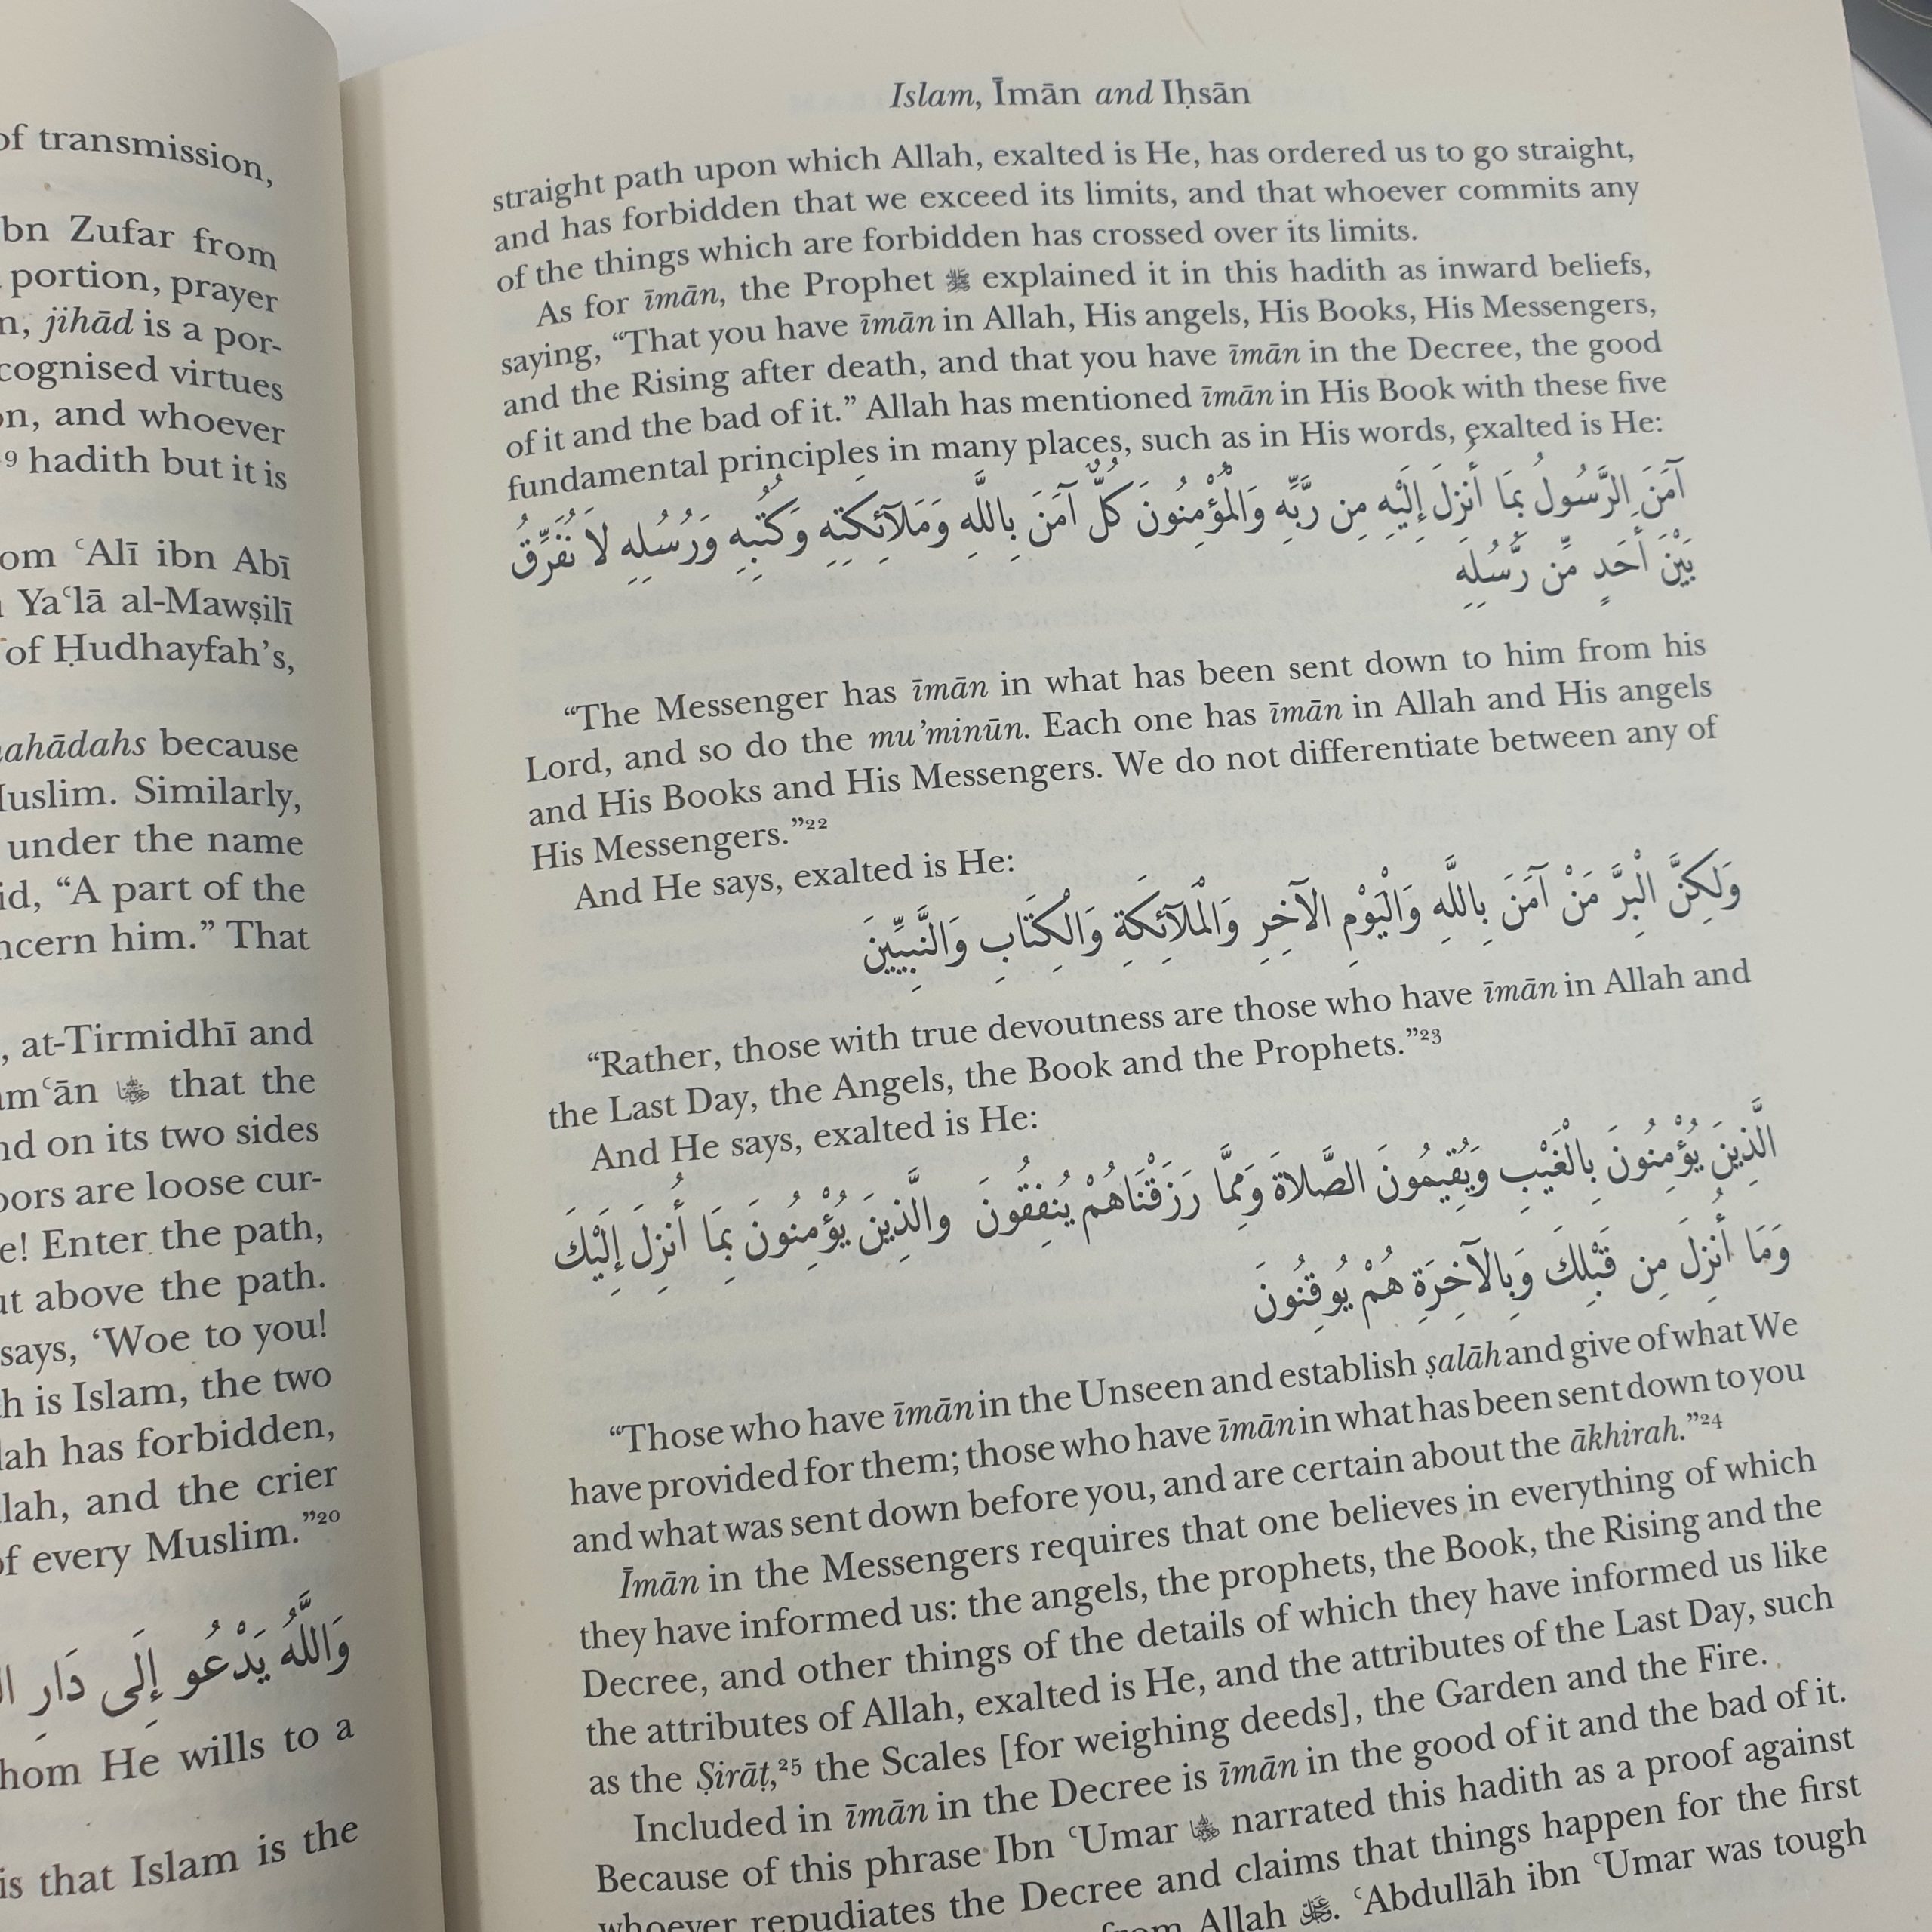 of transmission,
ibn Zufar from
portion, prayer
jihād is a por-
cognised virtues
on, and whoever
9 hadith but it is
om ʿAlī ibn Abī
Yaʿlā al-Mawṣilī
of Ḥudhayfah’s,
ahādahs because
Muslim. Similarly,
under the name
“A part of the
ncern him.” That
, at-Tirmidhī and
amʿān رضي الله عنه that the
nd on its two sides
oors are loose cur-
e! Enter the path,
above the path.
says, ‘Woe to you!
is Islam, the two
lah has forbidden,
llah, and the crier
of every Muslim.”20
وَاللَّهُ يَدْعُو إِلَى دَارِ
hom He wills to a
is that Islam is the
Islam, Īmān and Iḥsān
straight path upon which Allah, exalted is He, has ordered us to go straight,
and has forbidden that we exceed its limits, and that whoever commits any
of the things which are forbidden has crossed over its limits.
As for īmān, the Prophet ﷺ explained it in this hadith as inward beliefs,
saying, “That you have īmān in Allah, His angels, His Books, His Messengers,
and the Rising after death, and that you have īmān in the Decree, the good
of it and the bad of it.” Allah has mentioned īmān in His Book with these five
fundamental principles in many places, such as in His words, exalted is He:
آمَنَ الرَّسُولُ بِمَا أُنزِلَ إِلَيْهِ مِن رَّبِّهِ وَالْمُؤْمِنُونَ كُلٌّ آمَنَ بِاللَّهِ وَمَلَآئِكَتِهِ وَكُتُبِهِ وَرُسُلِهِ لاَ نُفَرِّقُ
بَيْنَ أَحَدٍ مِّن رُّسُلِهِ
“The Messenger has īmān in what has been sent down to him from his
Lord, and so do the mu’minūn. Each one has īmān in Allah and His angels
and His Books and His Messengers. We do not differentiate between any of
His Messengers.”22
And He says, exalted is He:
وَلَكِنَّ الْبِرَّ مَنْ آمَنَ بِاللَّهِ وَالْيَوْمِ الآخِرِ وَالْمَلآئِكَةِ وَالْكِتَابِ وَالنَّبِيِّينَ
“Rather, those with true devoutness are those who have īmān in Allah and
the Last Day, the Angels, the Book and the Prophets.”23
And He says, exalted is He:
الَّذِينَ يُؤْمِنُونَ بِالْغَيْبِ وَيُقِيمُونَ الصَّلاةَ وَمِمَّا رَزَقْنَاهُمْ يُنفِقُونَ والَّذِينَ يُؤْمِنُونَ بِمَا أُنزِلَ إِلَيْكَ
وَمَا أُنزِلَ مِن قَبْلِكَ وَبِالآخِرَةِ هُمْ يُوقِنُونَ
“Those who have īmān in the Unseen and establish ṣalāh and give of what We
have provided for them; those who have īmān in what has been sent down to you
and what was sent down before you, and are certain about the ākhirah.”24
Īmān in the Messengers requires that one believes in everything of which
they have informed us: the angels, the prophets, the Book, the Rising and the
Decree, and other things of the details of which they have informed us like
the attributes of Allah, exalted is He, and the attributes of the Last Day, such
as the Ṣirāṭ,25 the Scales [for weighing deeds], the Garden and the Fire.
Included in īmān in the Decree is īmān in the good of it and the bad of it.
Because of this phrase Ibn ʿUmar رضي الله عنه narrated this hadith as a proof against
whoever repudiates the Decree and claims that things happen for the first
from Allah ﷻ. ʿAbdullāh ibn ʿUmar was tough